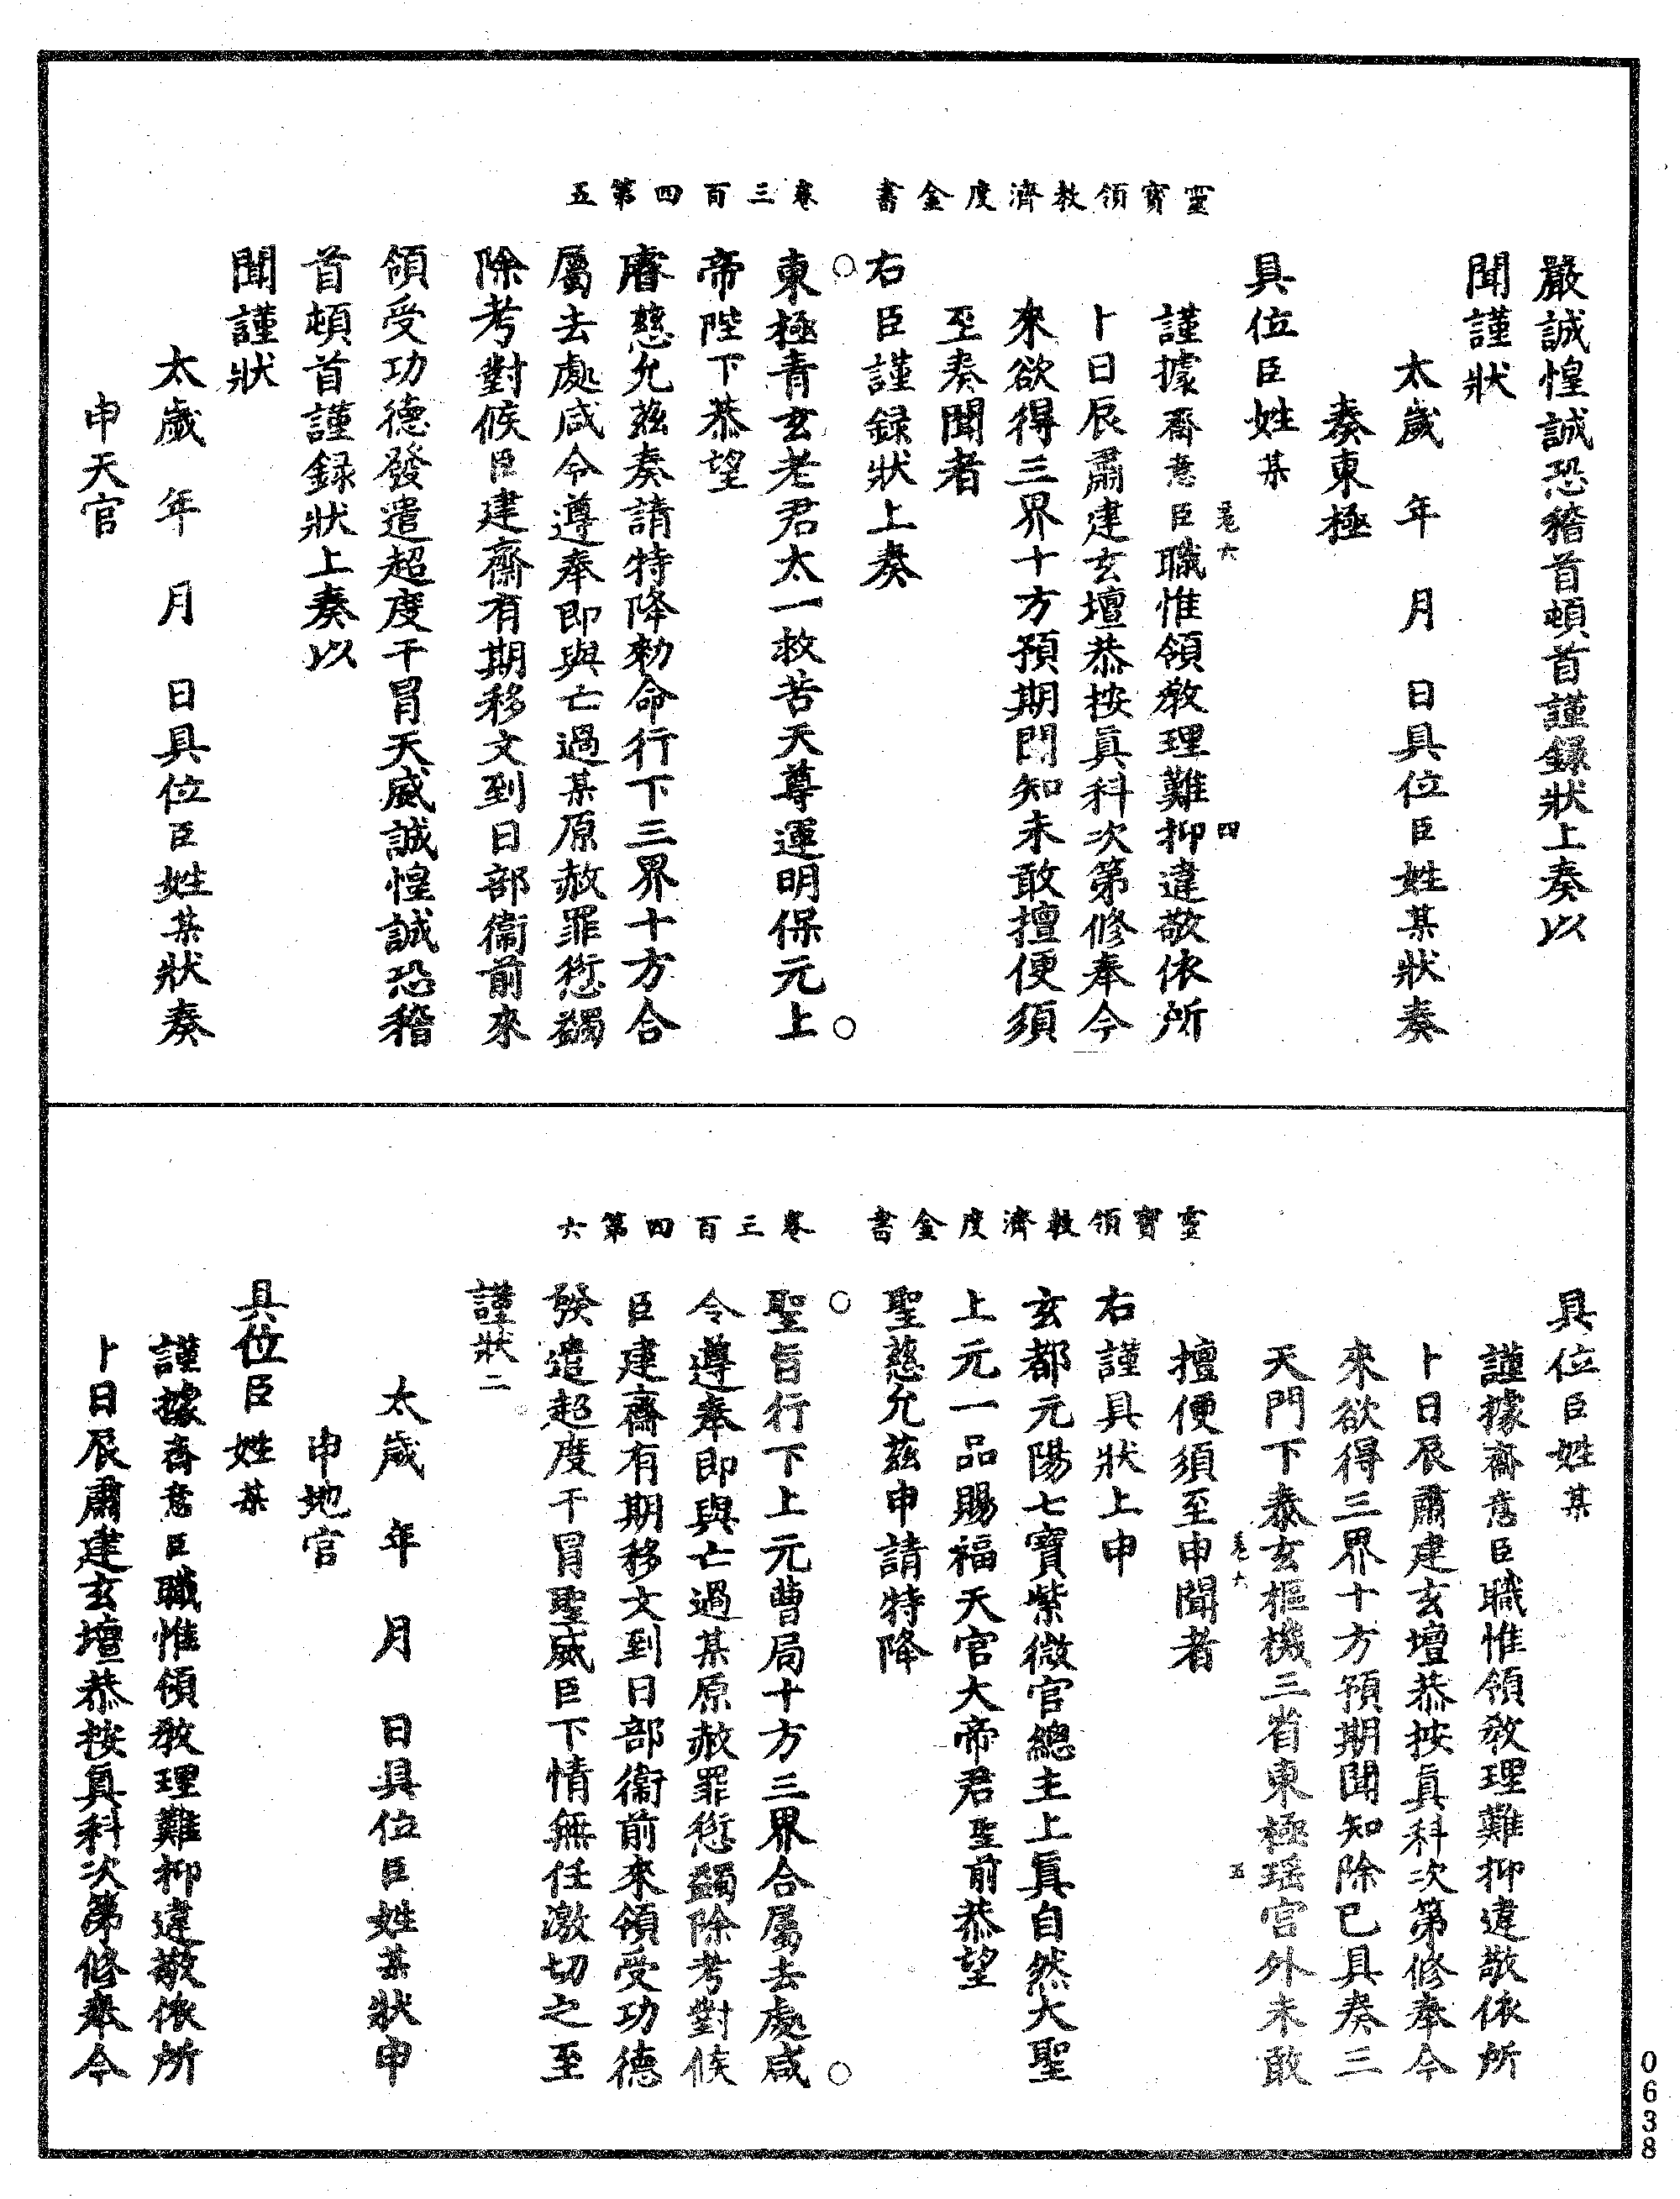 靈寶領教濟度金書　卷三百四第五
嚴誠惶誠恐稽首頓首謹録狀上奏以
聞謹狀
太歲　年　月　日具位臣姓某狀奏
奏東極
具位臣姓某
謹據齋意臣職惟領教理難抑違敬依所
卜日辰肅建玄壇恭按眞科次第修奉今
來欲得三界十方預期聞知未敢擅便須
至奏聞者
右臣謹録狀上奏
東極青玄老君太一救苦天尊運明保元上
帝陛下恭望
睿慈允茲奏請特降勑命行下三界十方合
屬去處咸令遵奉即與亡過某原赦罪愆蠲
除考對候臣建齋有期移文到日部衞前來
領受功德發遣超度干冒天威誠惶誠恐稽
首頓首謹録狀上奏以
聞謹狀
太歲　年　月　日具位臣姓某狀奏
申天官
靈寶領教濟度金書　卷三百四第六
具位臣姓某
謹據齋意臣職惟領教理難抑違敬依所
卜日辰肅建玄壇恭按眞科次第修奉今
來欲得三界十方預期聞知除已具奏三
天門下泰玄樞機三省東極瑶宫外未敢
擅便須至申聞者
右謹具狀上申
玄都元陽七寶紫微宫總主上眞自然大聖
上元一品賜福天官大帝君聖前恭望
聖慈允茲申請特降
聖旨行下上元曹局十方三界合屬去處咸
令遵奉即與亡過某原赦罪愆蠲除考對候
臣建齋有期移文到日部衞前來領受功德
發遣超度干冒聖威臣下情無任激切之至
謹狀二
太歲　年　月　日具位臣姓某狀申
申地官
具位臣姓某
謹據齋意臣職惟領教理難抑違敬依所
卜日辰肅建玄壇恭按眞科次第修奉今
0638